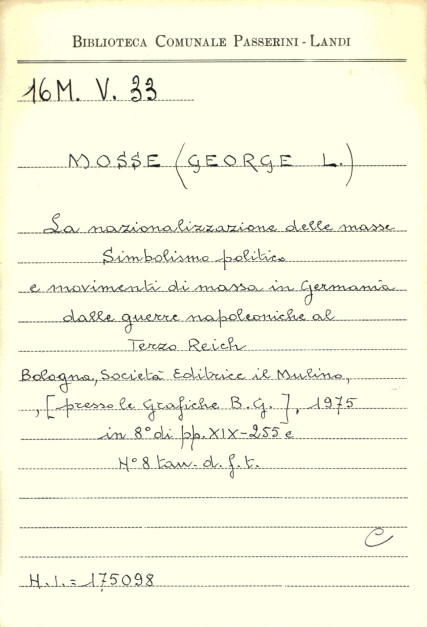 BIBLIOTECA COMUNALE PASSERINI - LANDI
16 M. V. 33
MOSSE (GEORGE L.)
La nazionalizzazione delle masse
Simbolismo politico
e movimenti di massa in Germania
dalle guerre napoleoniche al
Terzo Reich
Bologna, Società Editrice il Mulino,
, [presso le Grafiche B.G.], 1975
in 8° di pp. XIX-255 e
N° 8 tav. d. f. t.
C
H.I.= 175098